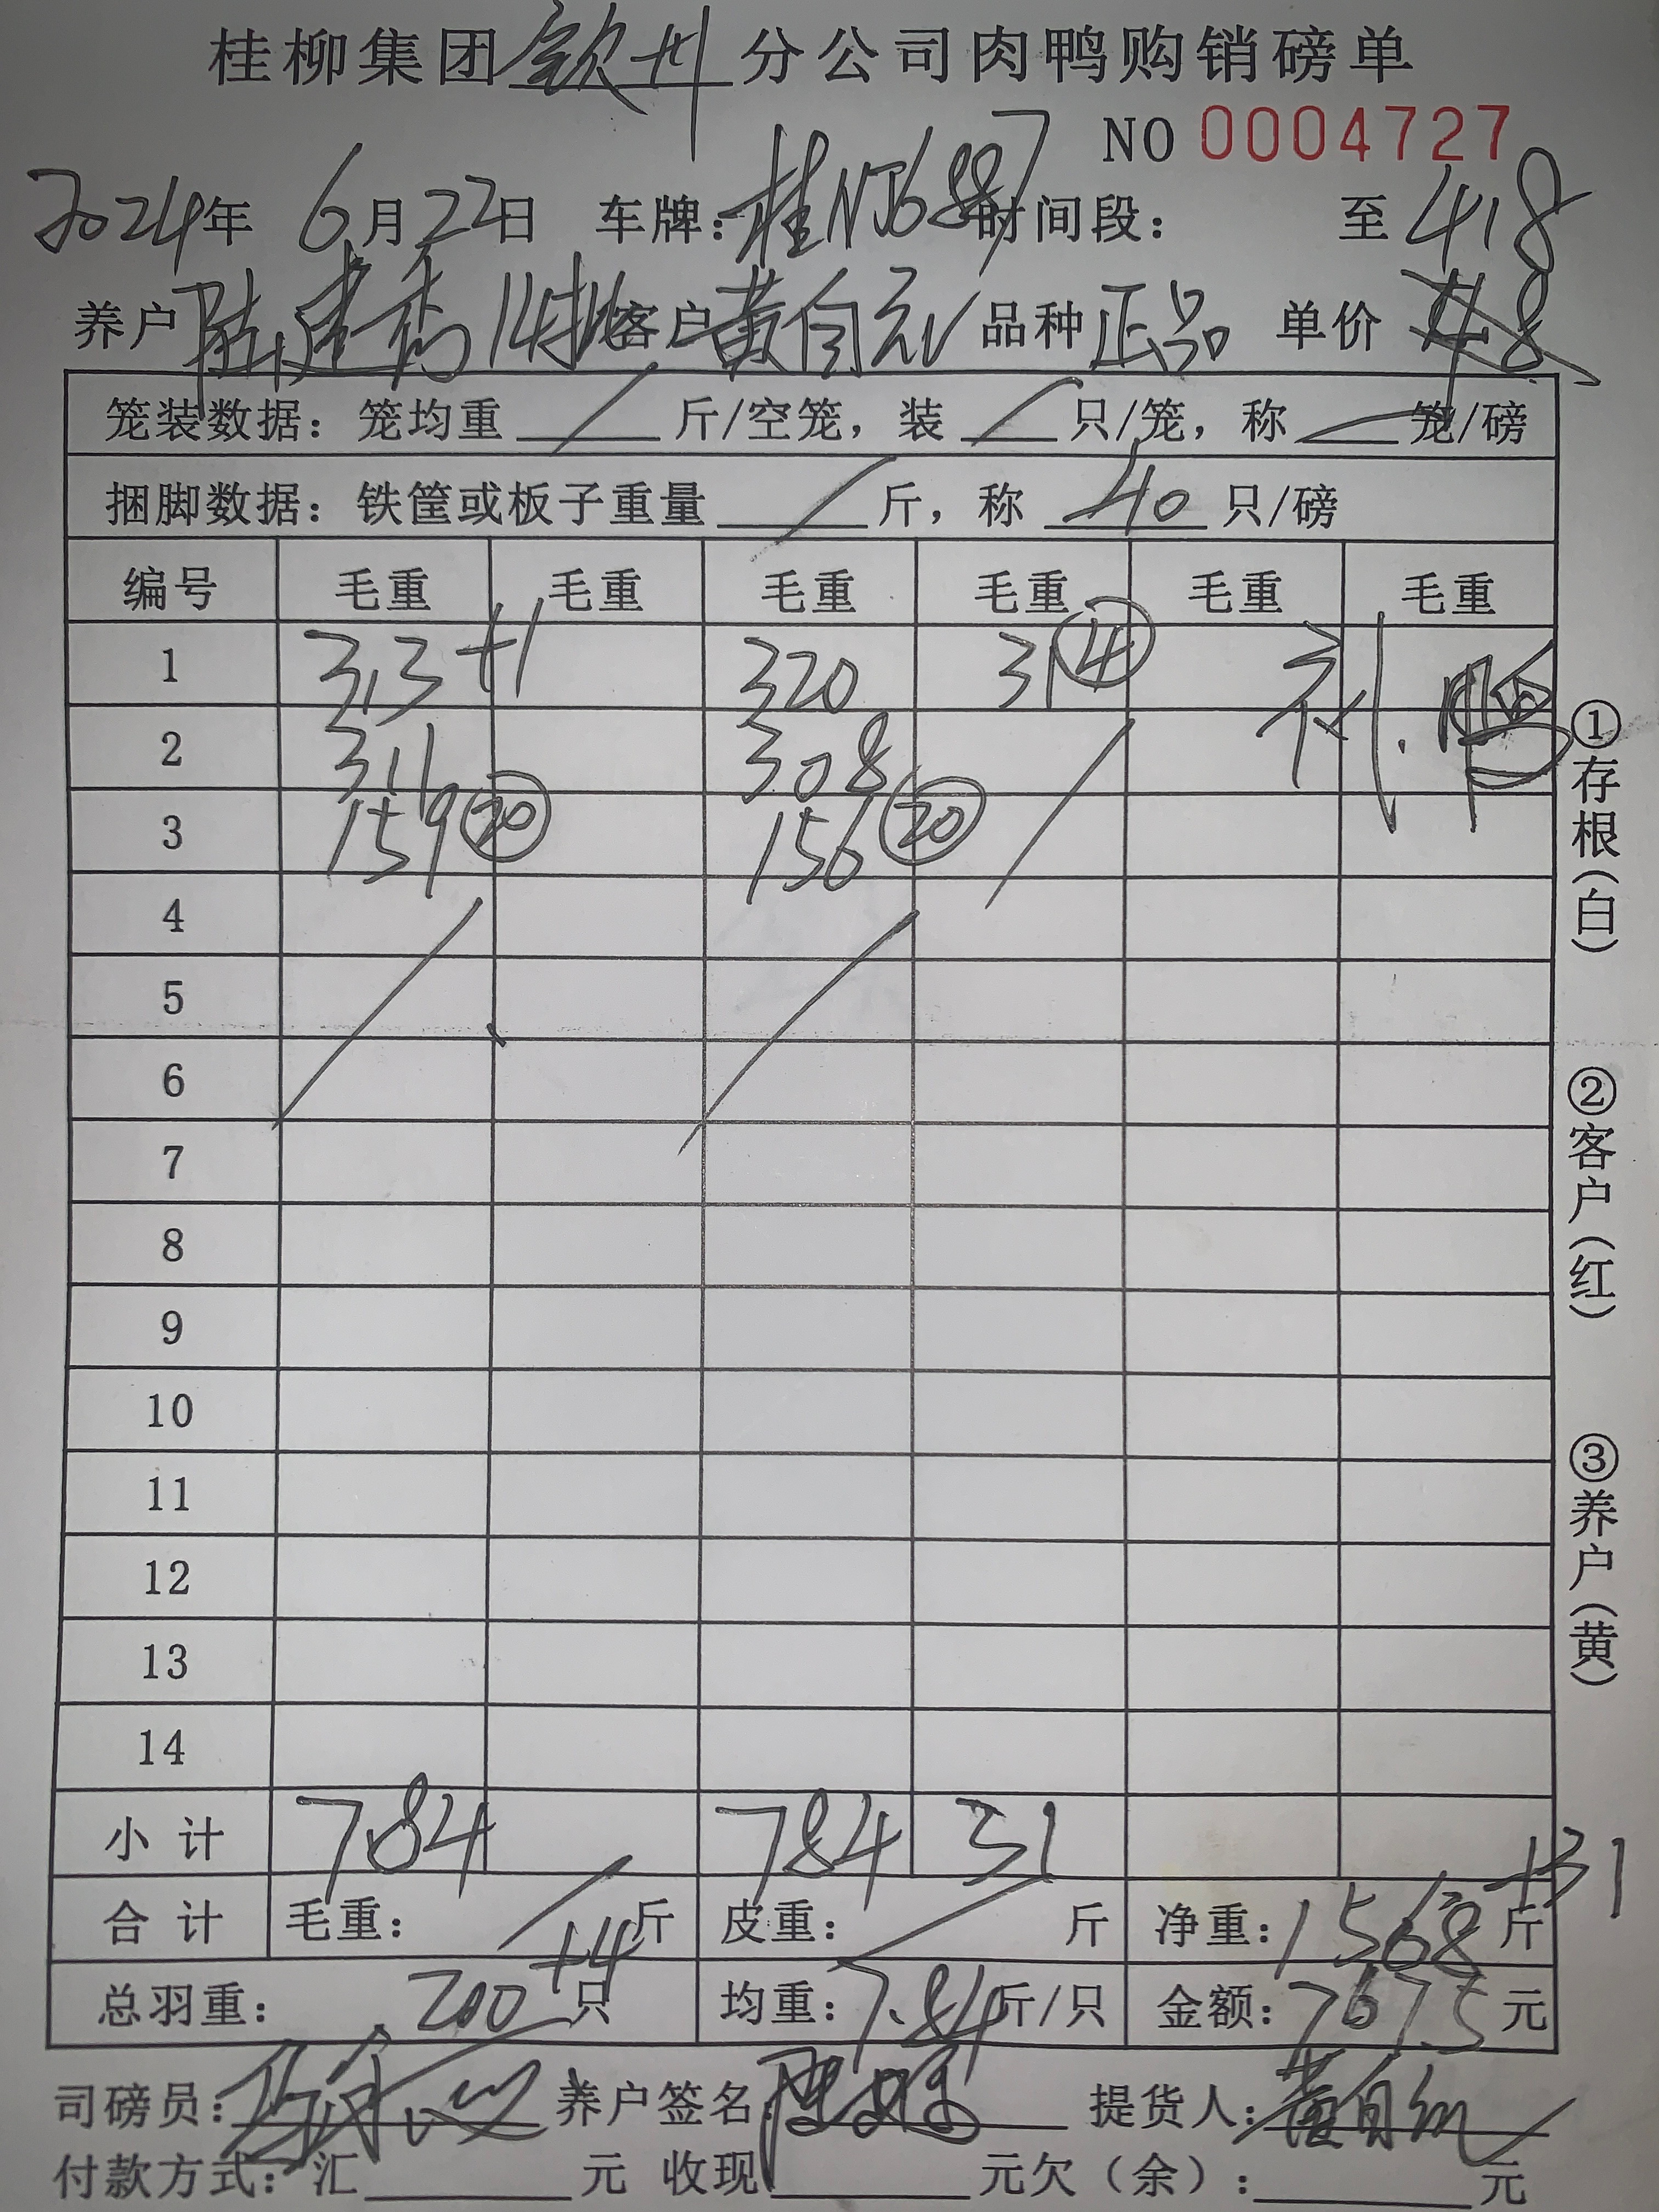 桂柳集团钦州分公司肉鸭购销磅单
NO 0004727
2024年 6月22日 车牌：桂NJ6887 时间段： 至 4.8
养户 陆建秀 14批 客户 黄自元 品种 正品 单价
笼装数据：笼均重 斤/空笼，装 只/笼，称 笼/磅
捆脚数据：铁筐或板子重量 斤，称 40 只/磅
编号 毛重 毛重 毛重 毛重 毛重 毛重
1 313+1 320 31④ 刘.鹏
2 311 308
3 159⑳ 156⑳
4
5
6
7
8
9
10
11
12
13
14
小计 784 784 31
合计 毛重： 斤 皮重： 斤 净重：1568+31 斤
总羽重：200+4 只 均重：7.84 斤/只 金额：7675 元
司磅员： 养户签名： 提货人：
付款方式：汇 元 收现 元欠（余）： 元
①存根（白）
②客户（红）
③养户（黄）